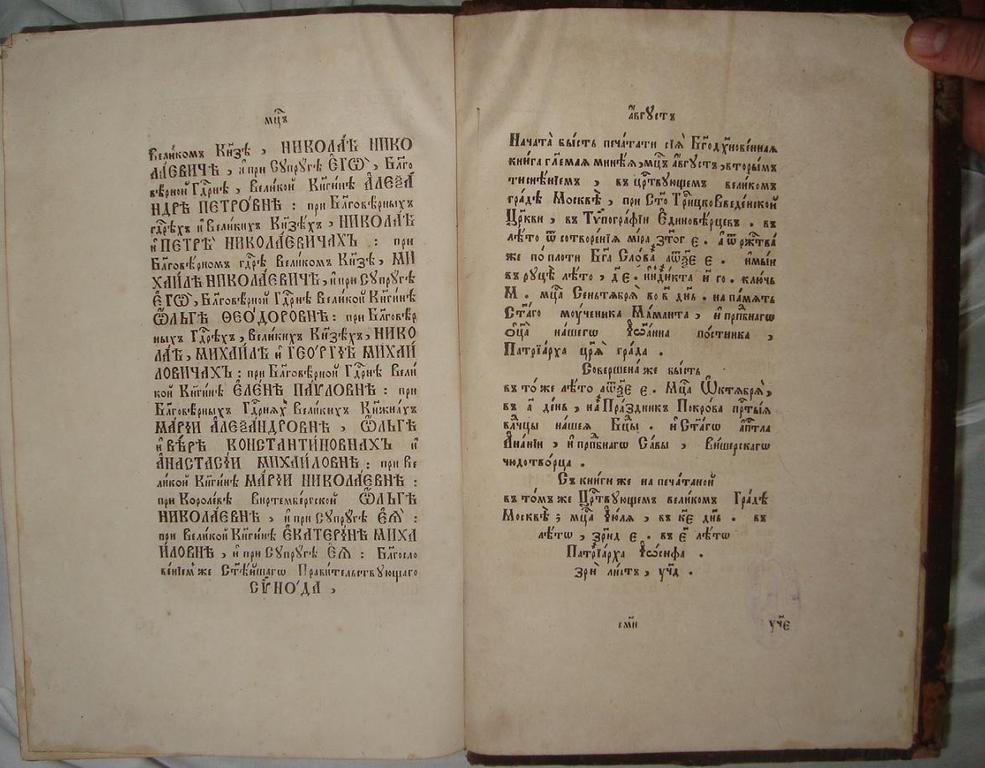 мц҃ъ
Великомъ Кн҃зѣ, НИКОЛАѢ НИКО
ЛАЕВИЧѢ, и при Супругѣ ЕГѠ, Бл҃го
вѣрной Гдⷭ҇рнѣ, Великой Кн҃гинѣ АЛЕѮА
НДРѢ ПЕТРОВНѢ: при Бл҃говѣрныхъ
гдⷭ҇рѣхъ и Великихъ Кн҃зѣхъ, НИКОЛАѢ
и ПЕТРѢ НИКОЛАЕВИЧАХЪ: при
Бл҃говѣрномъ гдⷭ҇рѣ Великомъ Кн҃зѣ, МИ
ХАИЛѢ НИКОЛАЕВИЧѢ, и при Супругѣ
ЕГѠ, Бл҃говѣрной Гдⷭ҇рнѣ Великой Кн҃гинѣ
ѾЛЬГѢ ѲЕОДОРОВНѢ: при Бл҃говѣр
ныхъ Гдⷭ҇рѣхъ, Великихъ Кн҃зѣхъ, НИКО
ЛАѢ, МИХАИЛѢ и ГЕОРГІѢ МИХАИ
ЛОВИЧАХЪ: при Бл҃говѣрной Гдⷭ҇рнѣ Вели
кой Кн҃гинѣ ЕЛЕНѢ ПАУЛОВНѢ: при
Бл҃говѣрныхъ Гдⷭ҇рняхъ Великихъ Кн҃жнахъ
МАРІИ АЛЕѮАНДРОВНѢ, ѾЛЬГѢ
и ВѢРѢ КОНСТАНТИНОВНАХЪ и
АНАСТАСІИ МИХАИЛОВНѢ: при Ве
ликой Кн҃гинѣ МАРІИ НИКОЛАЕВНѢ:
при Королевѣ Виртембергской ѾЛЬГѢ
НИКОЛАЕВНѢ, и при Супругѣ ЕѦ:
при Великой Кн҃гинѣ ЕКАТЕРІНѢ МИХА
ИЛОВНѢ, и при Супругѣ ЕѦ: Бл҃госло
венїемже Ст҃ѣйшаго Правительствующаго
СѴНОДА,
а҆́вгꙋстъ
Начата бысть печатати сїѧ Бг҃одꙋхновенная
книга гл҃емая минеѧ, мц҃ъ а҆́вгꙋстъ, вторымъ
тисненїемъ, въ црⷭ҇твующемъ великомъ
градѣ Москвѣ, при Ст҃о Трⷪ҇ицко Введенской
Цр҃кви, въ Тѵпографїи Единовѣрцевъ. въ
лѣто ѿ сотворенїя мїра ҂зт҃ог е. а ѿ ржⷭ҇тва
же по плоти Бг҃а Слова ҂аѡѯ҃е е. имыи
въ руцѣ лѣто, д҃ е. индикта и҃ го. ключь
М. мц҃а Сеньтября во в҃ дн҃ь. на память
Ст҃аго моученика Маманта, и прпⷣбнаго
оц҃а нашегѡ Іѡанна постника,
Патрїарха цр҃я града.
Совершена же бысть
въ то же лѣто ҂аѡѯ҃е е. Мц҃а Ѡктября,
въ а҃ день, на Праздникъ Покрова прⷭ҇тыя
влⷣчцы нашея Бц҃ы. и Ст҃аго апⷭ҇тла
Ананїи, и прпⷣбнагѡ Савы, Вишерскагѡ
чюдотворца.
Съ книги же на печатаной
въ томъ же Црⷭ҇твующемъ великомъ Градѣ
Москвѣ; мц҃а Іюля, въ к҃е дн҃ь. въ
лѣто, ҂зрн҃д е. въ е҃ лѣто
Патрїарха Іѡсифа.
зри листъ, уч҃д.
ѕми
уч҃е